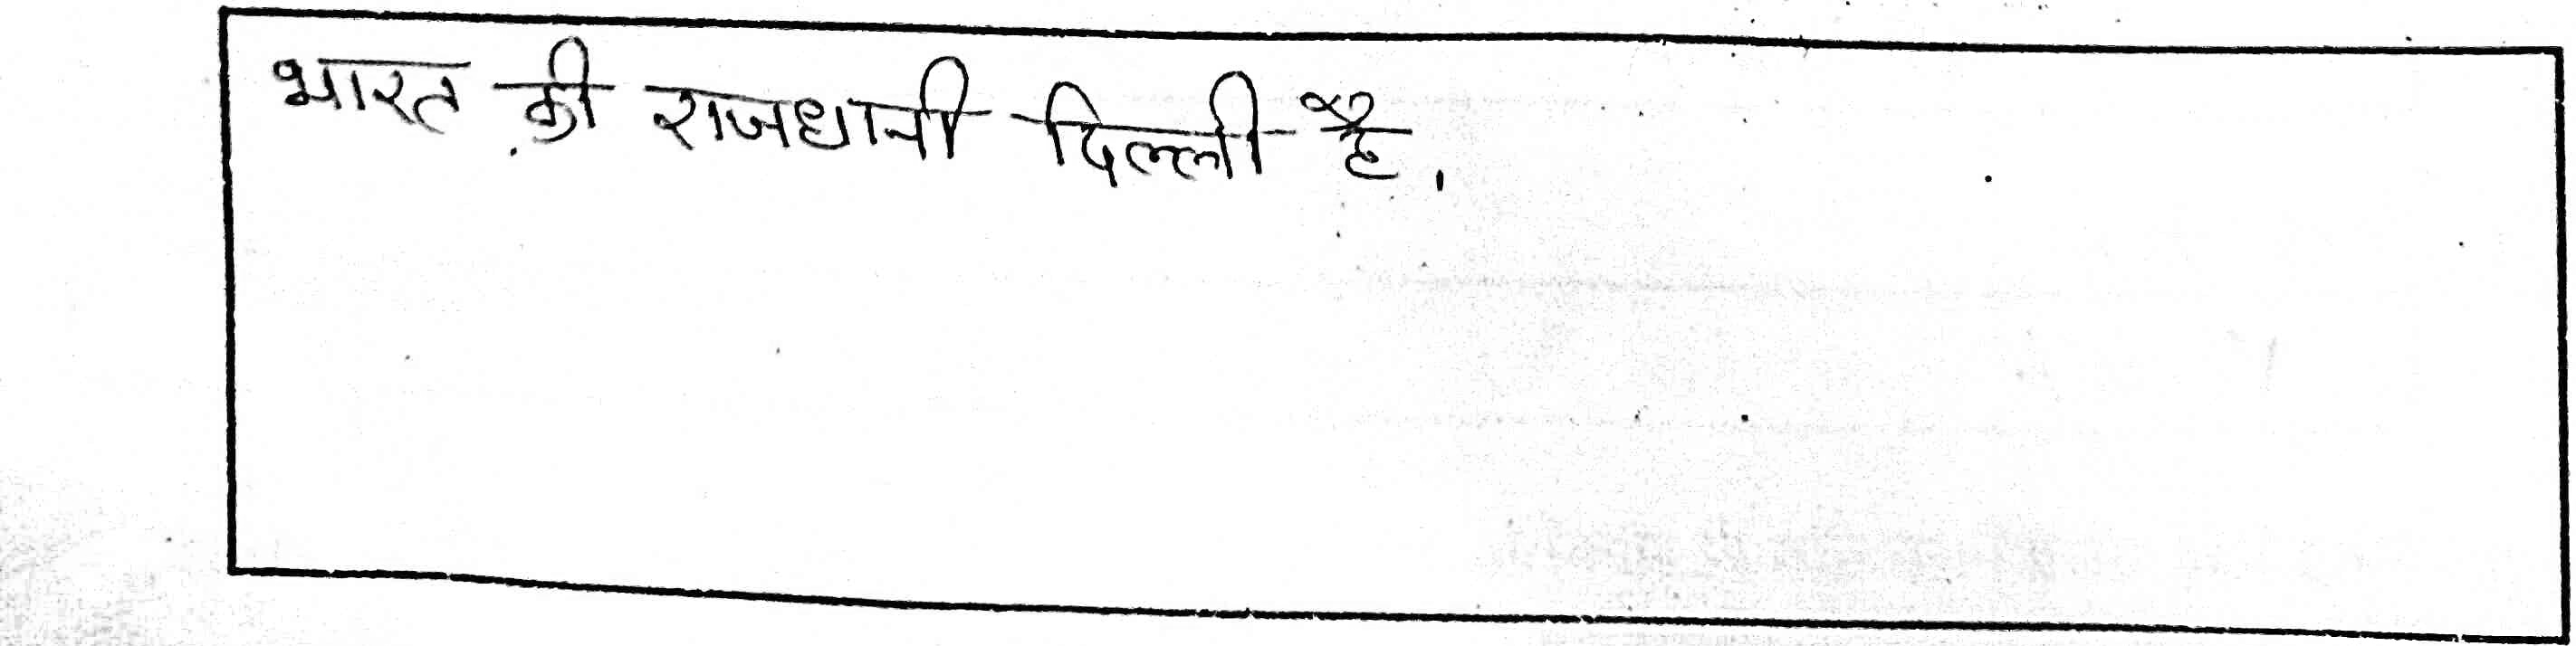 भारत की राजधानी दिल्ली है.